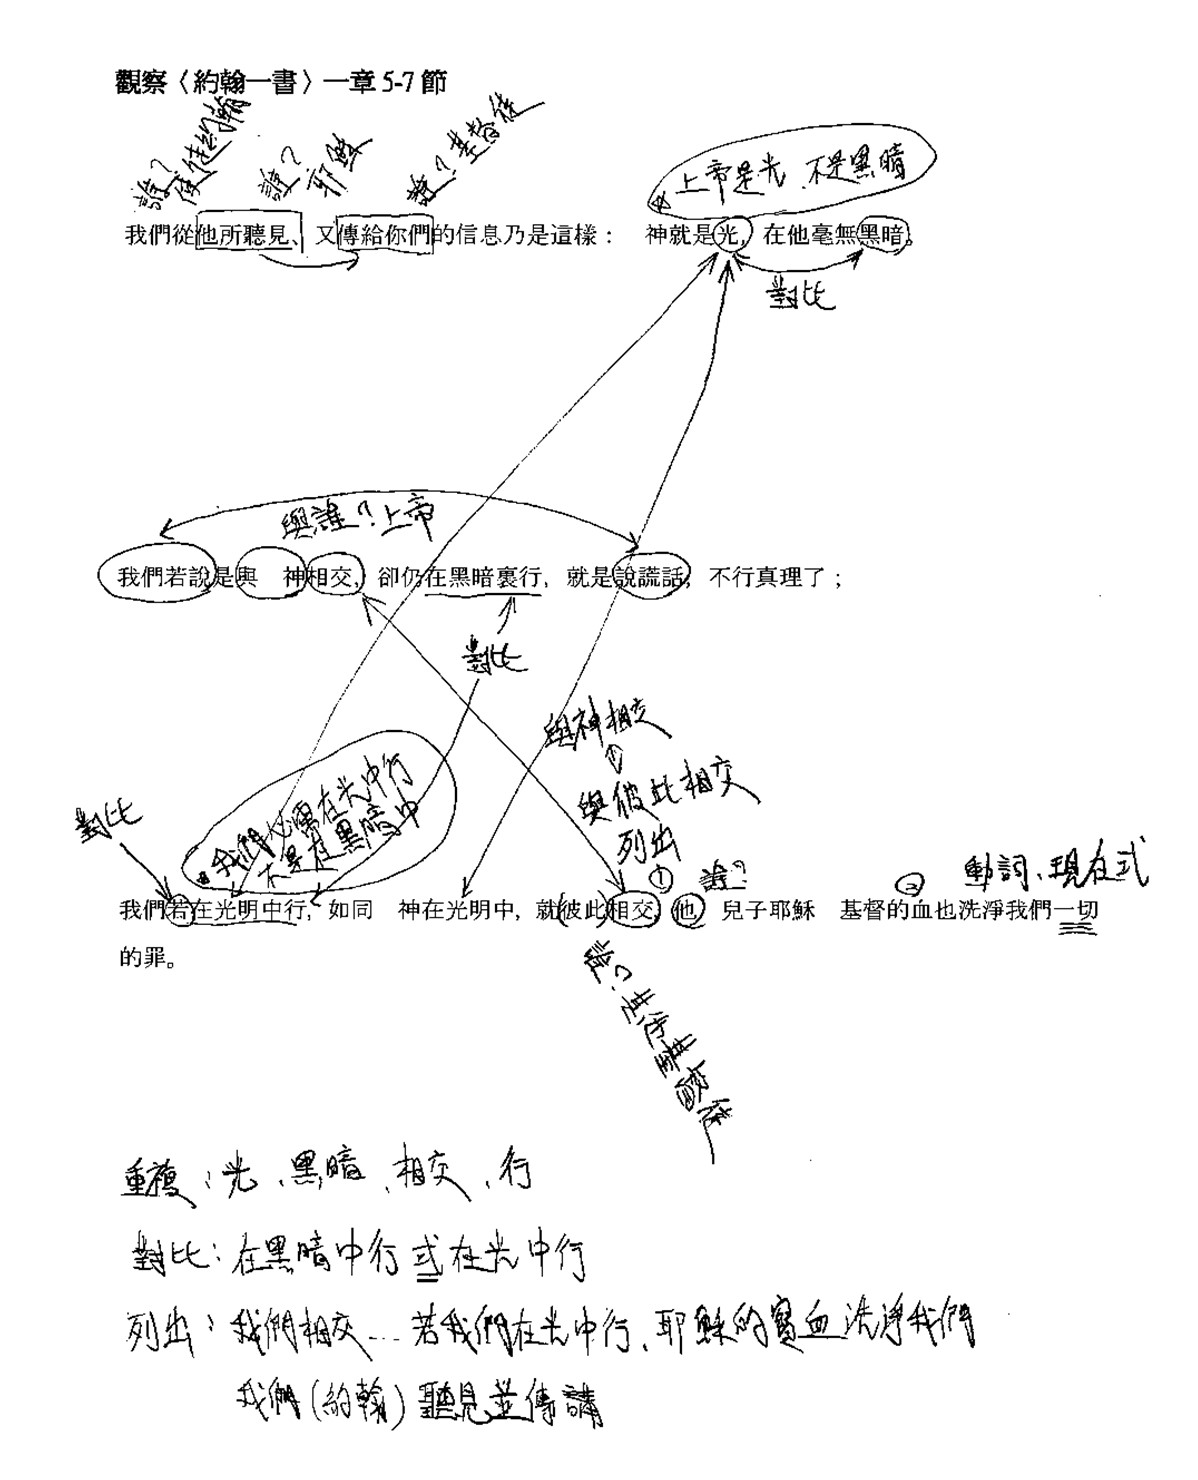 觀察〈約翰一書〉一章 5-7 節
誰？使徒約翰
誰？耶穌
誰？基督徒
上帝是光、不是黑暗
我們從他所聽見、又傳給你們的信息乃是這樣：　神就是光，在他毫無黑暗。
對比
與誰？上帝
我們若說是與　神相交，卻仍在黑暗裏行，就是說謊話，不行真理了；
對比
與神相交
與彼此相交
列出
對比
我們必需在光中行
不是在黑暗中
①
誰？
② 動詞、現在式
我們若在光明中行，如同　神在光明中，就(彼此)相交，他　兒子耶穌　基督的血也洗淨我們一切
的罪。
誰？
重複：光、黑暗、相交、行
對比：在黑暗中行或在光中行
列出：我們相交...若我們在光中行、耶穌的寶血洗淨我們
我們(約翰)聽見並傳講